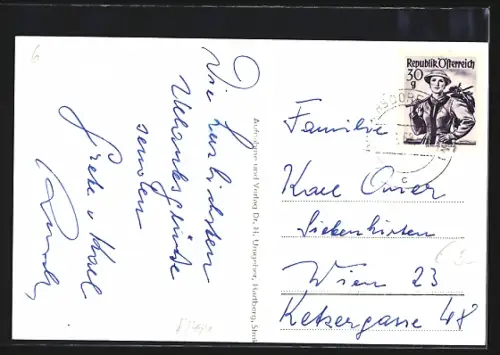 6
Die herzlichsten
Urlaubsgrüße
senden
Grete u. Karl
Aufnahme und Verlag Dr. H. Umgeher, Hartberg, Stei
Republik Österreich
30
g
Familie
Karl
Siebenhirten
Wien 23
Ketzergasse 48